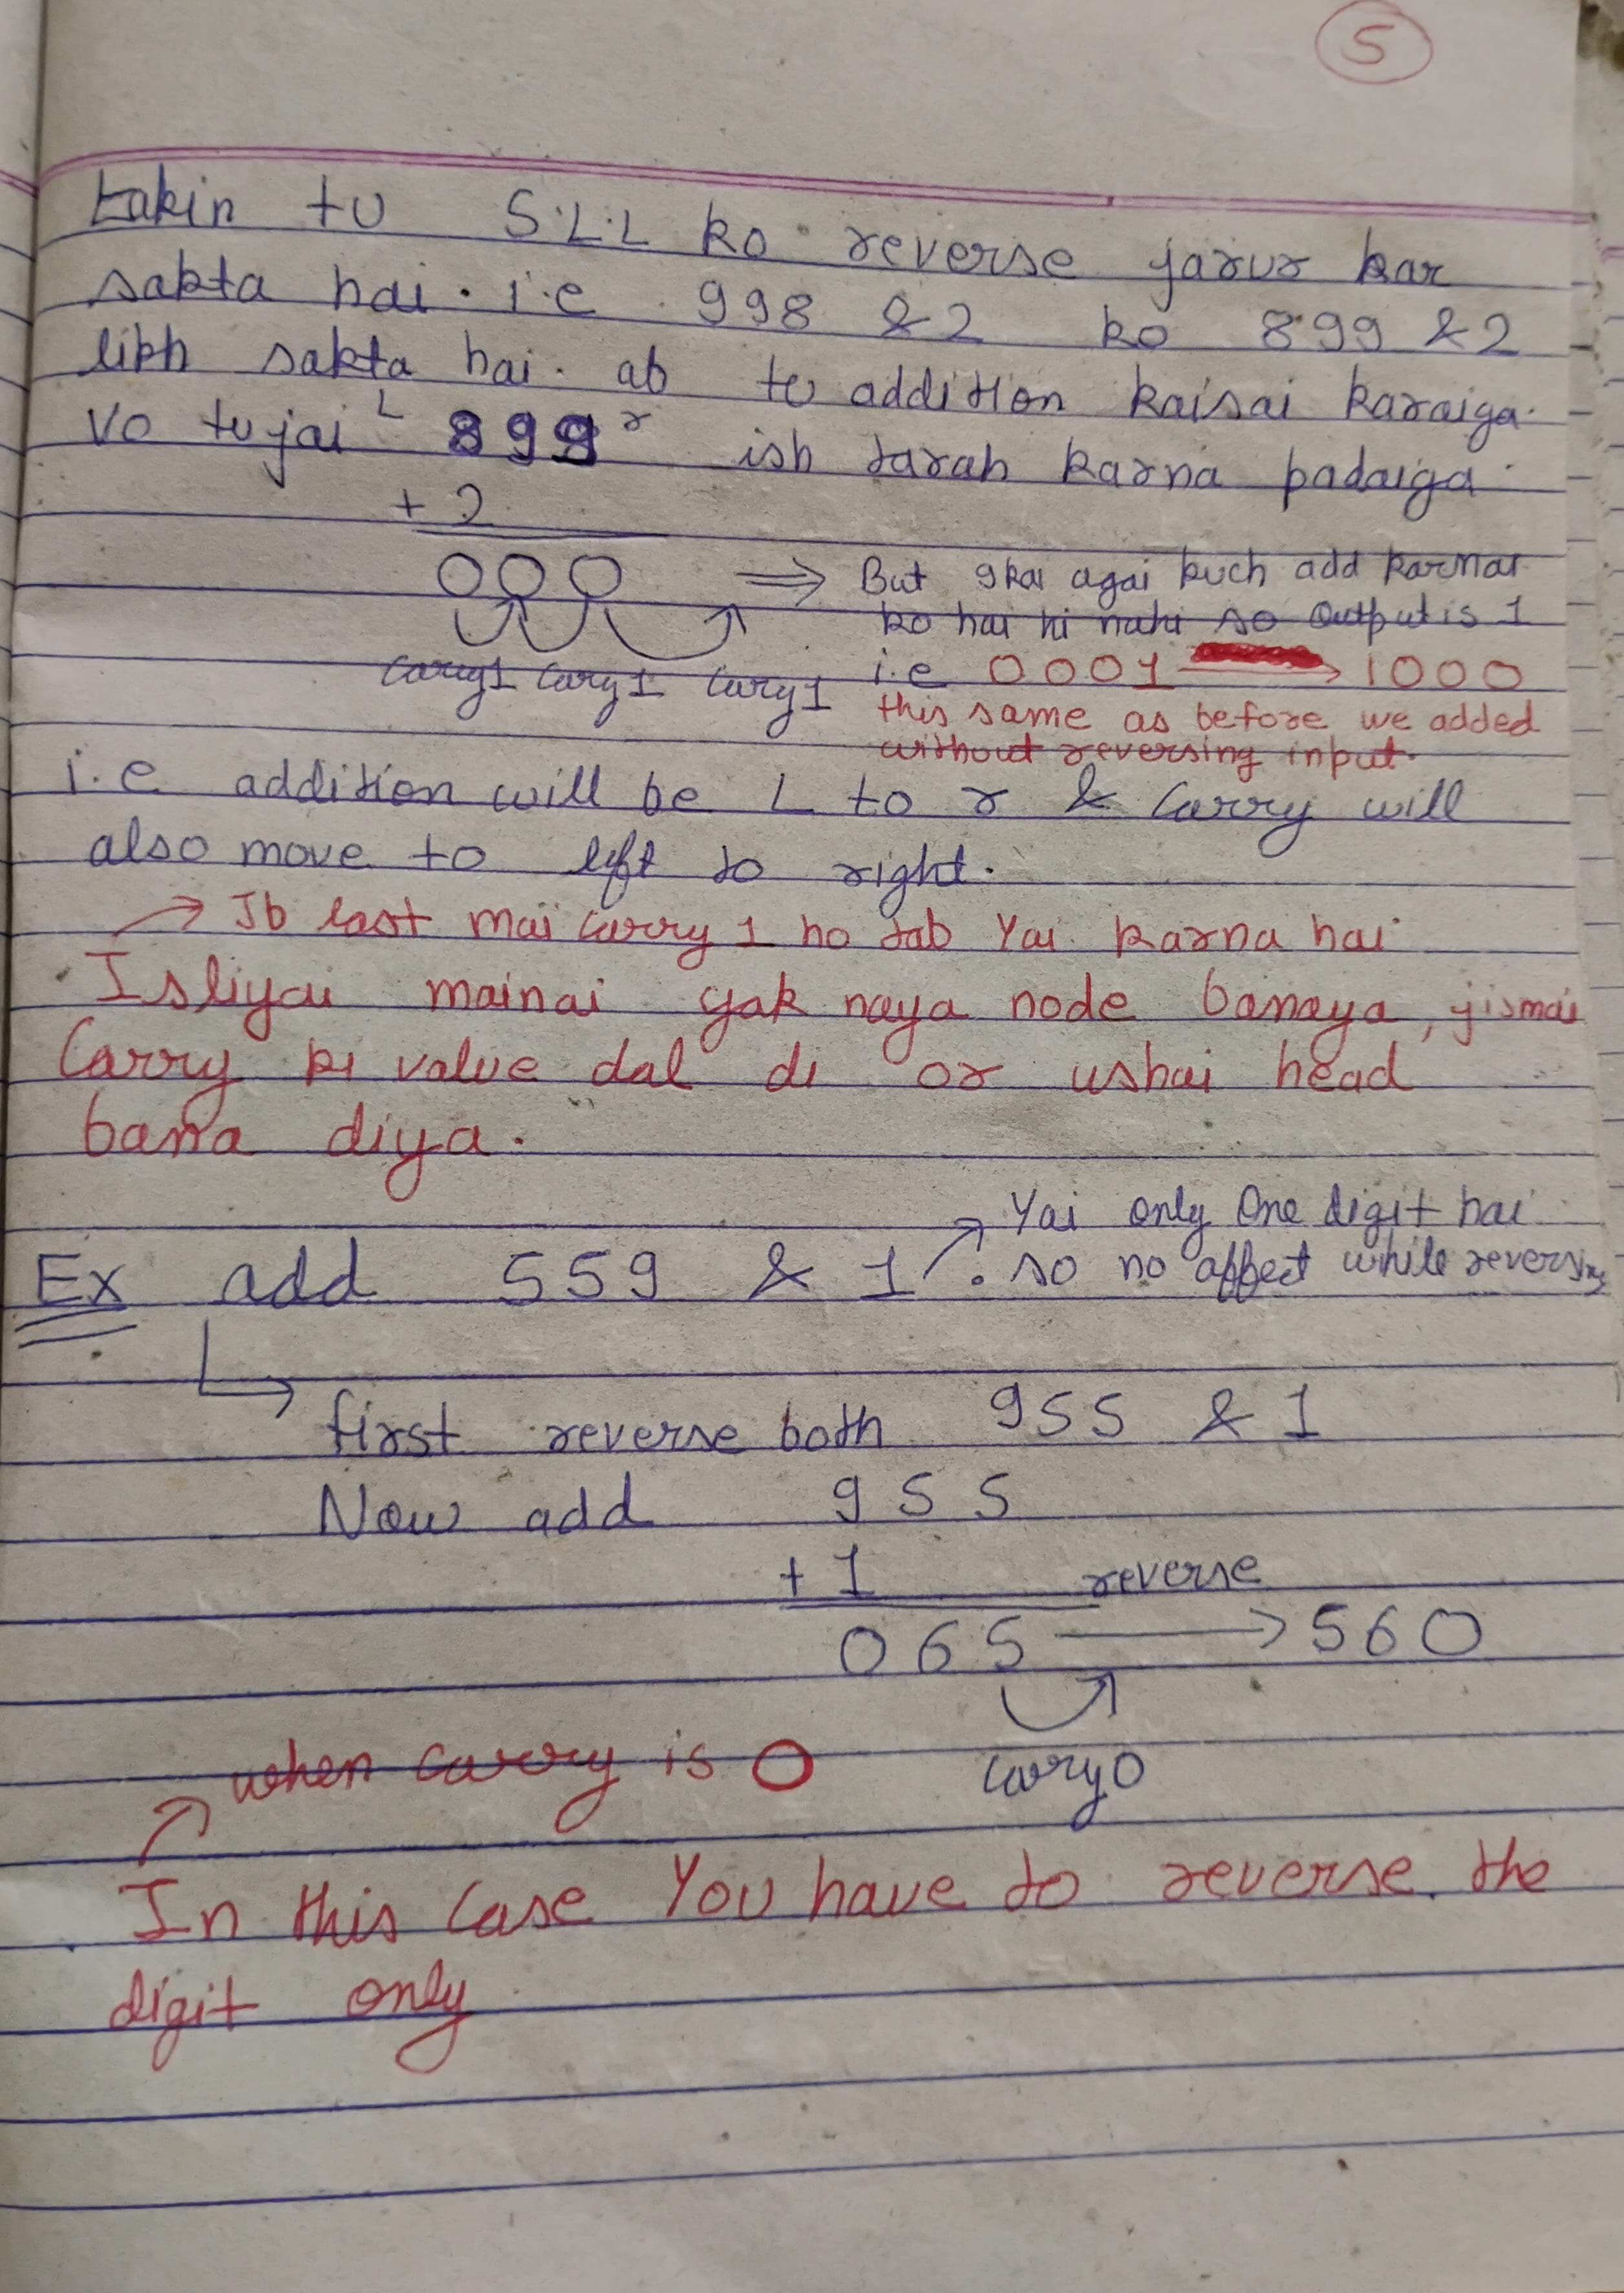 5
Lakin tu S.L.L ko reverse jarur kar
sakta hai. i.e 998 & 2 ko 899 & 2
likh sakta hai. ab tu addition kaisai karaiga.
vo tujai L 899 r ish tarah karna padaiga.
+ 2
000 => But 9 kai agai kuch add karnai
ko hai hi nahi so output is 1
cary1 cary1 cary1 i.e 0001 → 1000
this same as before we added
without reversing input.
i.e addition will be L to r & carry will
also move to left to right.
→ Jb last mai carry 1 ho tab Yai karna hai
Isliyai mainai yak naya node banaya, jismai
Carry ki value dal di or uskai head
bana diya.
→ Yai only one digit hai
Ex add 559 & 1 . so no affect while reversing
first reverse both 955 & 1
Now add 955
+ 1 reverse
065 → 560
cary0
when carry is 0
In this case You have to reverse the
digit only